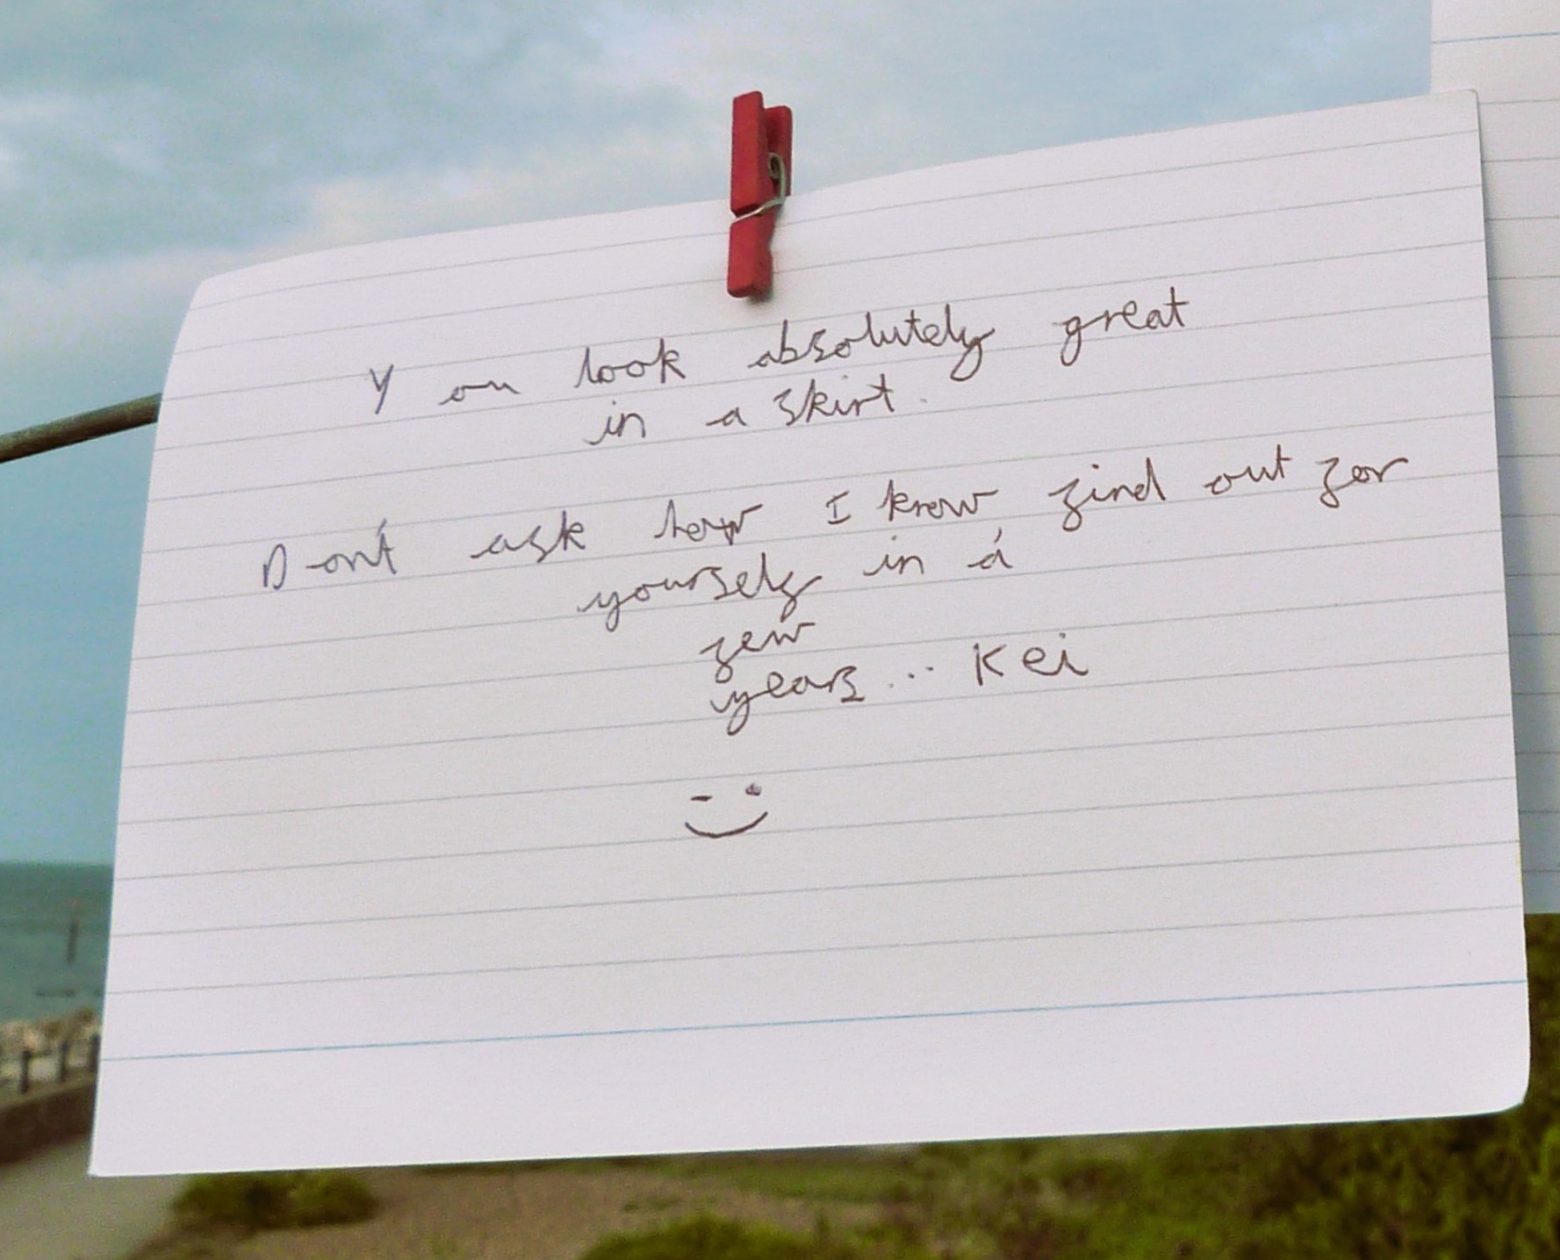 You look absolutely great
in a skirt.
Don't ask how I know find out for
yourself in a
few
years... Kei